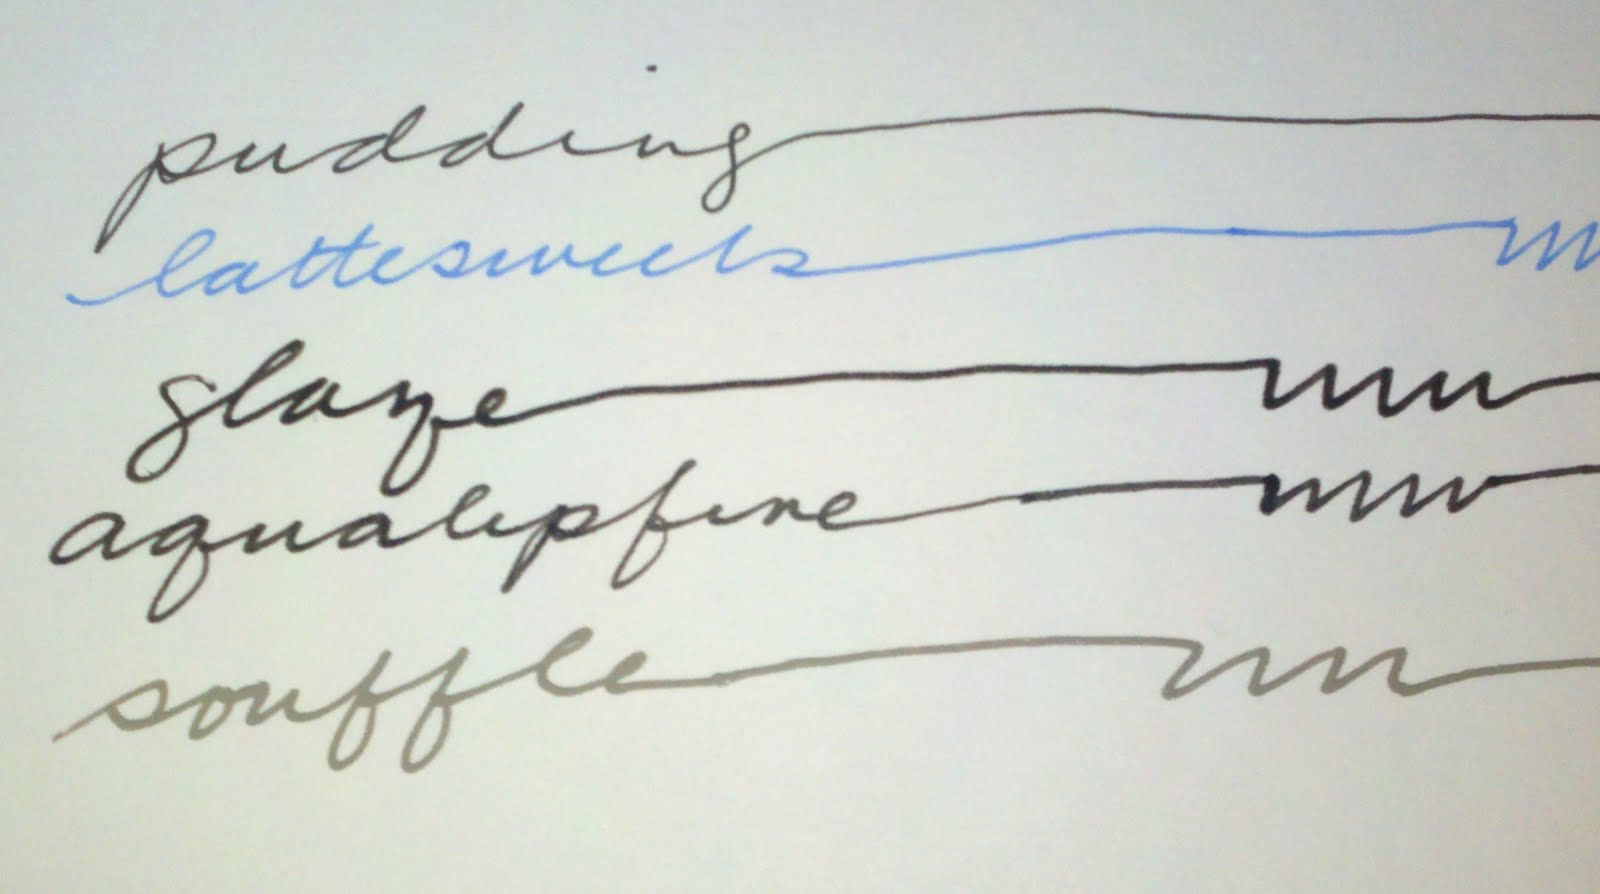 pudding
lattesweets
glaze
aqualipfine
souffle